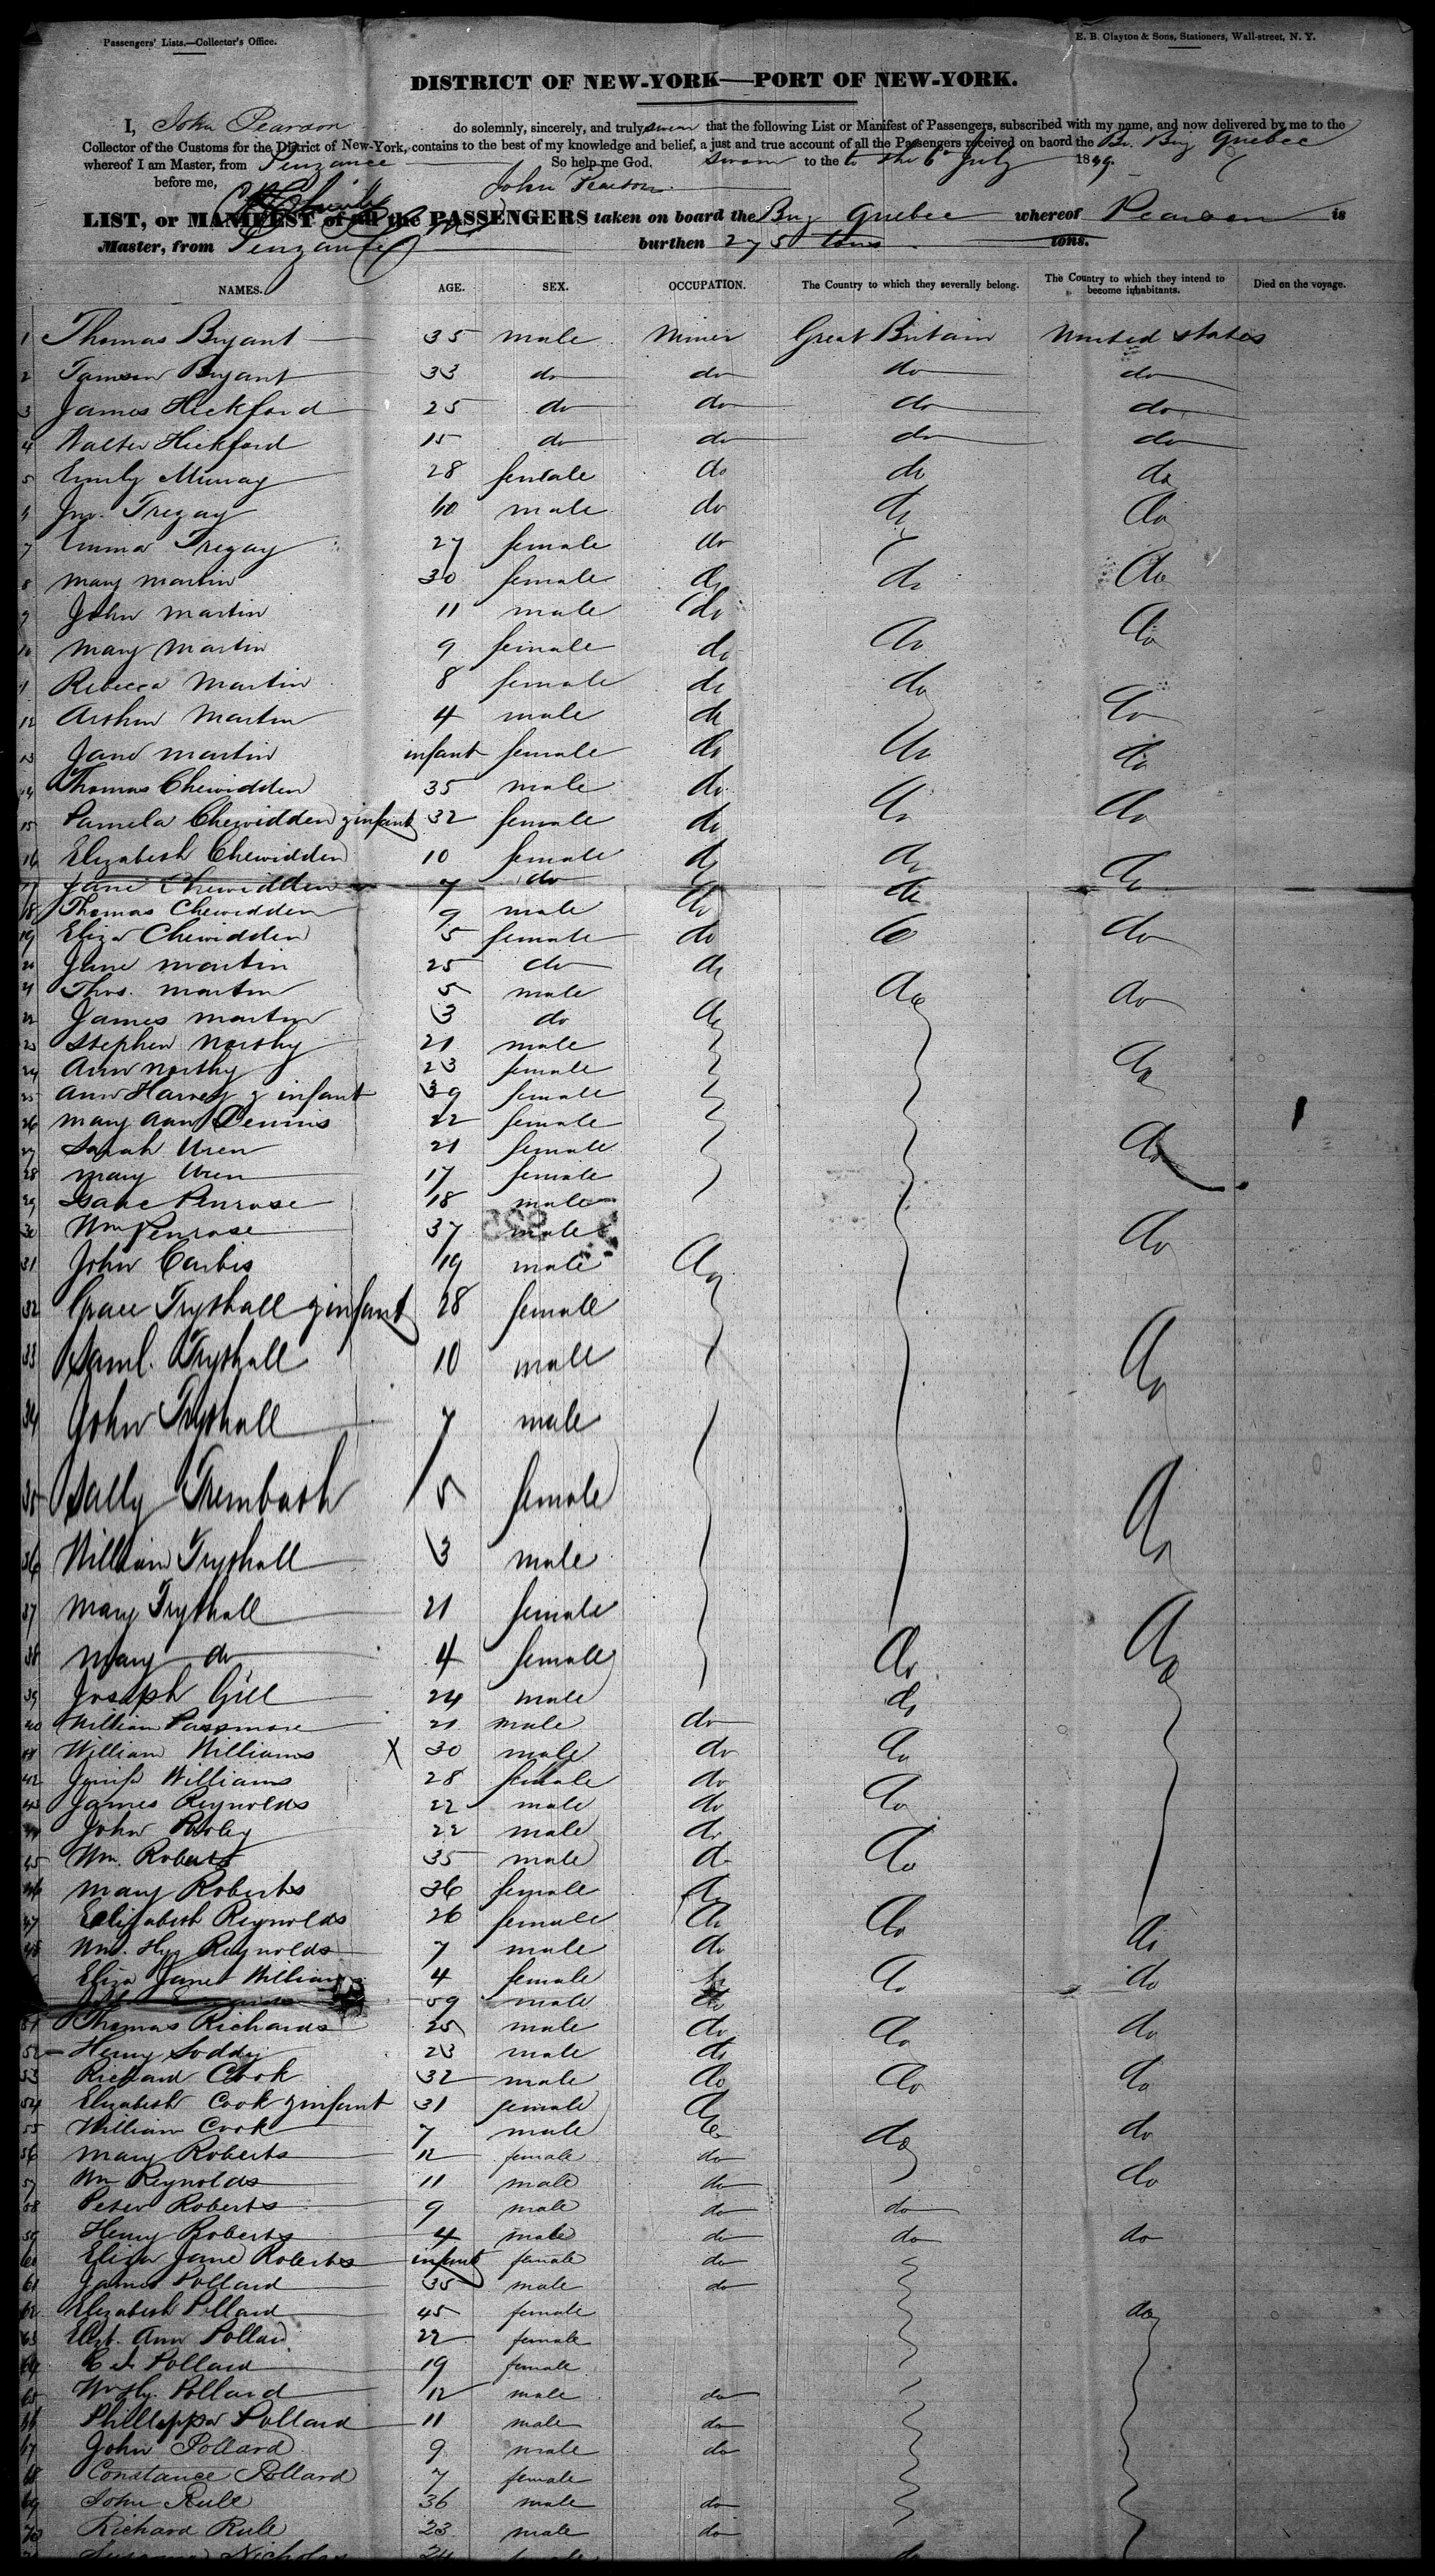 Passengers' Lists.—Collector's Office.
E. B. Clayton & Sons, Stationers, Wall-street, N. Y.
DISTRICT OF NEW-YORK—PORT OF NEW-YORK.
I, John Pearson do solemnly, sincerely, and truly swear that the following List or Manifest of Passengers, subscribed with my name, and now delivered by me to the
Collector of the Customs for the District of New-York, contains to the best of my knowledge and belief, a just and true account of all the Passengers received on baord the Br. Brig Quebec
whereof I am Master, from Penzance So help me God. sworn to the 6 July 1849.
before me, John Pearson
LIST, or MANIFEST of all the PASSENGERS taken on board the Brig Quebec whereof Pearson is
Master, from Penzance burthen 275 tons tons.
NAMES. AGE. SEX. OCCUPATION. The Country to which they severally belong. The Country to which they intend to become inhabitants. Died on the voyage.
1 Thomas Bryant 35 male Miner Great Britain United States
2 Tamson Bryant 33 do do do do
3 James Hickford 25 do do do do
4 Walter Hickford 15 do do do do
5 Emily Murray 28 female do do do
6 Jno. Tregay 40 male do do do
7 Emma Tregay 27 female do
8 Mary Martin 30 female do do do
9 John Martin 11 male do
10 Mary Martin 9 female do do do
11 Rebecca Martin 8 female do do
12 Arthur Martin 4 male do do
13 Jane Martin infant female do do do
14 Thomas Chewidden 35 male do
15 Pamela Chewidden & infant 32 female do do do
16 Elizabeth Chewidden 10 female do do do
17 Jane Chewidden 7 do do
18 Thomas Chewidden 9 male do
19 Eliza Chewidden 5 female do do do
20 Jane Martin 25 do do
21 Thos. Martin 5 male do do
22 James Martin 3 do do
23 Stephen Northy 21 male
24 Ann Northy 23 female do
25 Ann Harvey & infant 39 female
26 Mary Ann Dennis 22 female
27 Sarah Uren 21 female do
28 Mary Uren 17 female
29 Isaac Penrose 18 male
30 Wm Penrose 37 male do
31 John Carbis 19 male do
32 Grace Trythall & infant 28 female
33 Saml. Trythall 10 male do
34 John Trythall 7 male
35 Sally Trembath 5 female do
36 William Trythall 3 male
37 Mary Trythall 21 female
38 Mary do 4 female do do
39 Joseph Gill 24 male do
40 William Passmore 21 male do
41 William Williams X 30 male do do
42 Williams 28 female do
43 James Reynolds 22 male do do
44 John 22 male do
45 Wm. Roberts 35 male do do
46 Mary Roberts 36 female do
47 Elizabeth Reynolds 26 female do do do
48 Wm. Hy. Reynolds 7 male do
Eliza Jane Williams 4 female do do
59 male do
51 Thomas Richards 25 male do do do
52 Henry Soddy 23 male do
53 Richard Cook 32 male do do do
54 Elizabeth Cook & infant 31 female do
55 William Cook 7 male do do do
56 Mary Roberts 12 female do
57 Wm Reynolds 11 male do do
58 Peter Roberts 9 male do do
59 Henry Roberts 4 male do do do
60 Eliza Jane Roberts infant female do
61 James Pollard 35 male do
62 Elizabeth Pollard 45 female do
63 Elizt. Ann Pollard 22 female
64 Pollard 19 female
65 Wm Hy. Pollard 12 male do
66 Phillippa Pollard 11 male do
67 John Pollard 9 male do
68 Constance Pollard 7 female
69 John Rule 36 male do
70 Richard Rule 23 male do
Nicholas 24